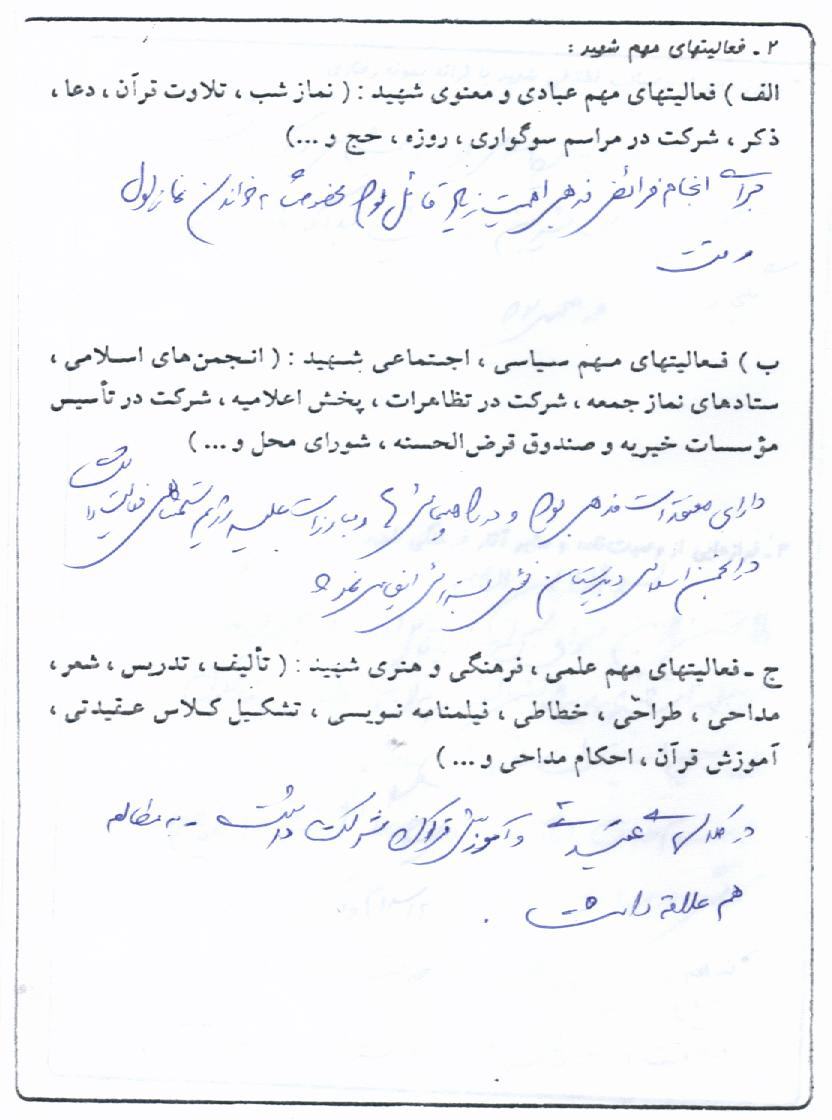 ۲ ـ فعالیتهای مهم شهید :
الف ) فعالیتهای مهم عبادی و معنوی شهید : ( نماز شب ، تلاوت قرآن ، دعا ،
ذکر ، شرکت در مراسم سوگواری ، روزه ، حج و ...)
برای انجام فرائض مذهبی اهمیت زیاد قائل بود مخصوصاً به خواندن نماز اول
وقت
ب ) فعالیتهای مهم سیاسی ، اجتماعی شهید : ( انجمن‌های اسلامی ،
ستادهای نماز جمعه ، شرکت در تظاهرات ، پخش اعلامیه ، شرکت در تأسیس
مؤسسات خیریه و صندوق قرض‌الحسنه ، شورای محل و ... )
دارای معتقدات مذهبی بود و در راهپیمائی ها و مبارزات علیه رژیم ستمشاهی فعالیت داشت
در انجمن اسلامی دبیرستان نقش انجام می نمود
ج ـ فعالیتهای مهم علمی ، فرهنگی و هنری شهید : ( تألیف ، تدریس ، شعر ،
مداحی ، طراحّی ، خطاطی ، فیلمنامه نویسی ، تشکیل کلاس عقیدتی ،
آموزش قرآن ، احکام مداحی و ... )
در کلاسهای عقیدتی و آموزش قرآن شرکت داشت - به مطالعه
هم علاقه داشت .